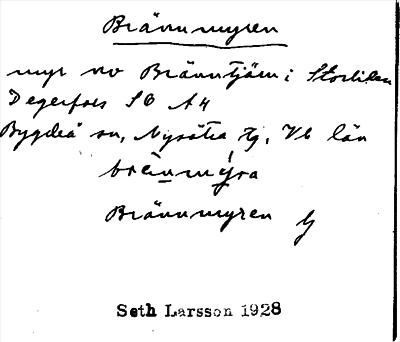 Brännmyren
myr nv Bränntjärn i Storliden
Degerfors SO A4
Bygdeå sn, Nysätra tg, Vb län
brännmýra
Brännmyren
Seth Larsson 1928